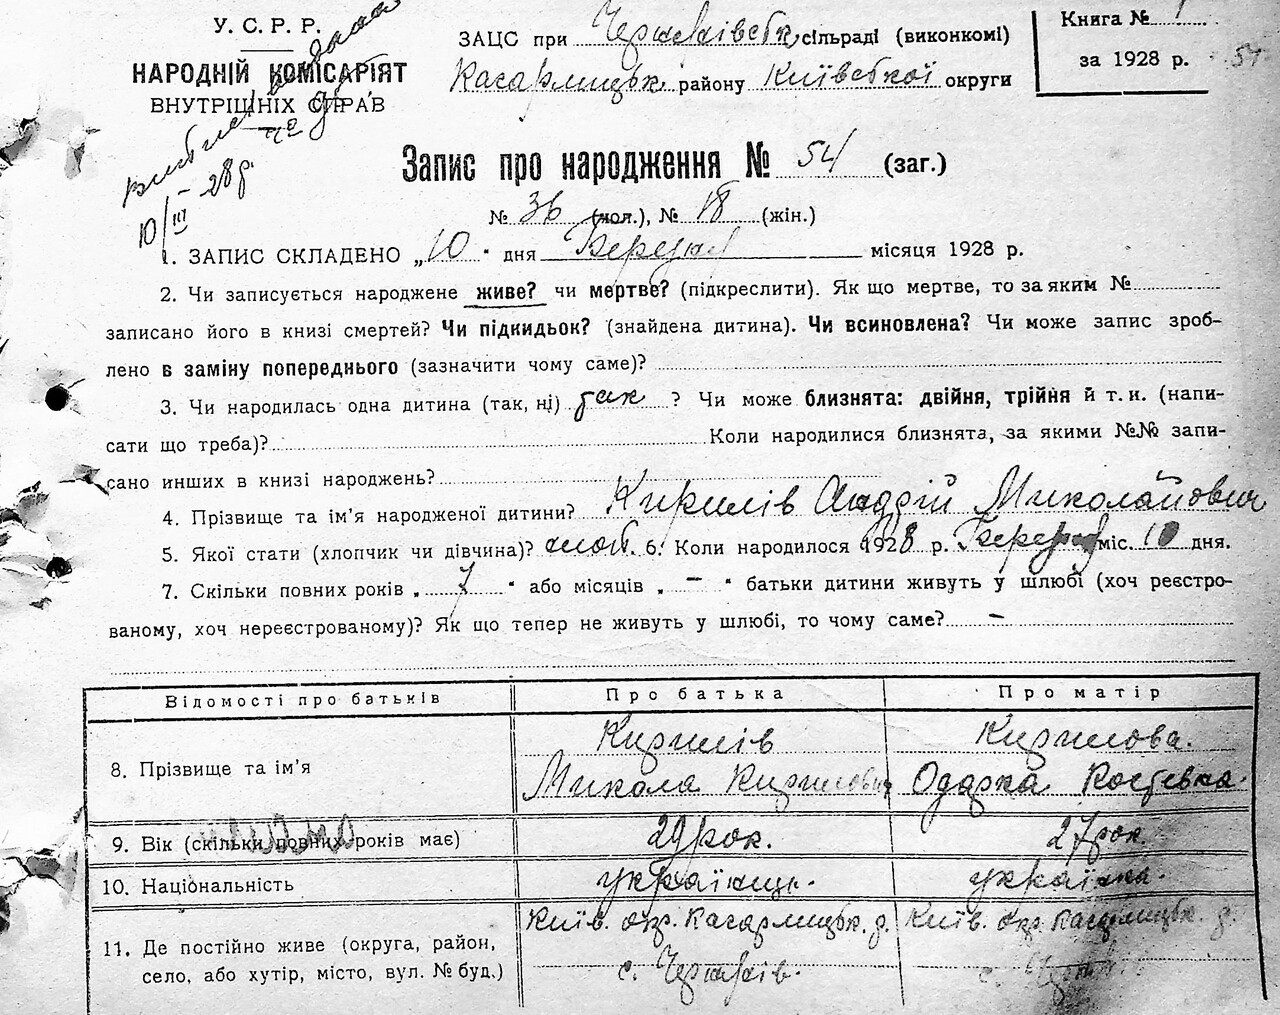 У. С. Р. Р.
НАРОДНІЙ КОМІСАРІЯТ
ВНУТРІШНІХ СПРАВ
10/III - 28 р
ЗАЦС при сільраді (виконкомі)
Кагарлицьк району Київської округи
Книга № 1
за 1928 р. 54
Запис про народження № 54 (заг.)
№ 36 (чол.), № 18 (жін.)
1. ЗАПИС СКЛАДЕНО „ 10 " дня Березня місяця 1928 р.
2. Чи записується народжене живе? чи мертве? (підкреслити). Як що мертве, то за яким №
записано його в книзі смертей? Чи підкидьок? (знайдена дитина). Чи всиновлена? Чи може запис зроб-
лено в заміну попереднього (зазначити чому саме)?
3. Чи народилась одна дитина (так, ні) так ? Чи може близнята: двійня, трійня й т. и. (напи-
сати що треба)? Коли народилися близнята, за якими №№ запи-
сано инших в книзі народжень?
4. Прізвище та ім'я народженої дитини? Кирилів Андрій Миколайович
5. Якої стати (хлопчик чи дівчина)? хлоп. 6. Коли народилося 1928 р. Березня міс. 10 дня.
7. Скільки повних років „ 7 " або місяців „ – " батьки дитини живуть у шлюбі (хоч реєстро-
ваному, хоч нереєстрованому)? Як що тепер не живуть у шлюбі, то чому саме? –
Відомості про батьків Про батька Про матір
8. Прізвище та ім'я Кирилів Микола Кирилович Кирилова. Одарка Костівна.
9. Вік (скільки повних років має) 29 рок. 27 рок.
10. Національність українець. українка.
11. Де постійно живе (округа, район, Київ. окр. Кагарлицьк. р. Київ. окр. Кагарлицьк. р.
село, або хутір, місто, вул. № буд.) с. с.